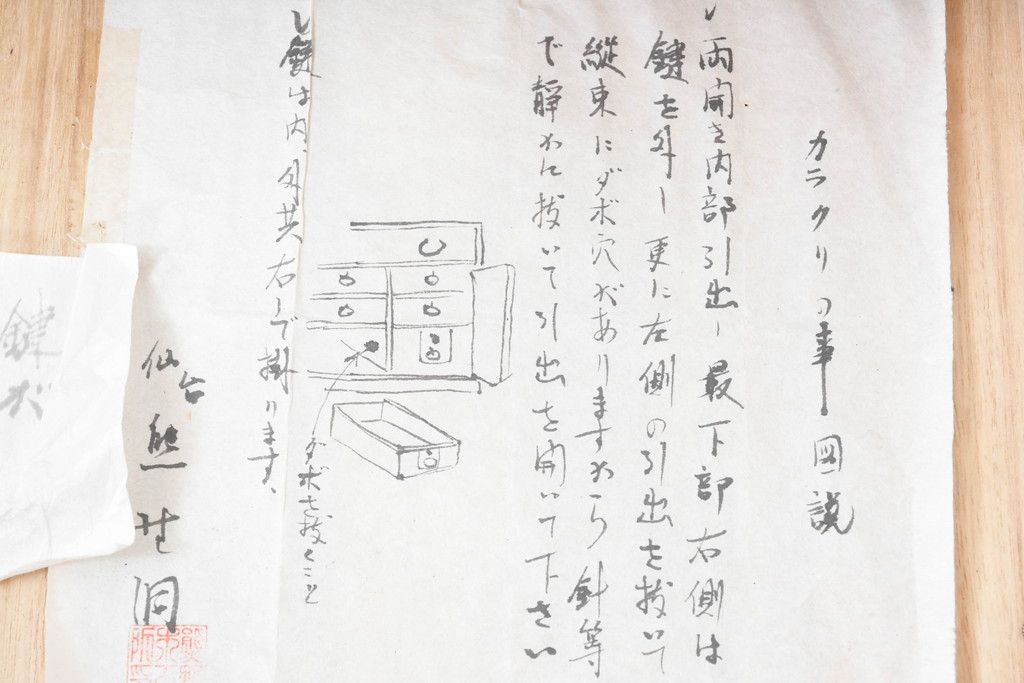 カラクリの事 図説
レ両開き内部引出し最下部右側は
鍵を外し更に左側の引出を抜いて
縦束にダボ穴がありますから針等
で静かに抜いて引出を開いて下さい
ダボを抜くこと
レ鍵は内、外共右しで掛ります、
仙台
熊野洞
鍵